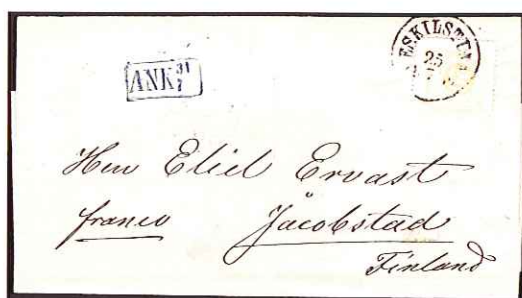 ESKILSTUNA
25
7
ANK 31/7
Herr Eliel Ervast
franco Jacobstad
Finland